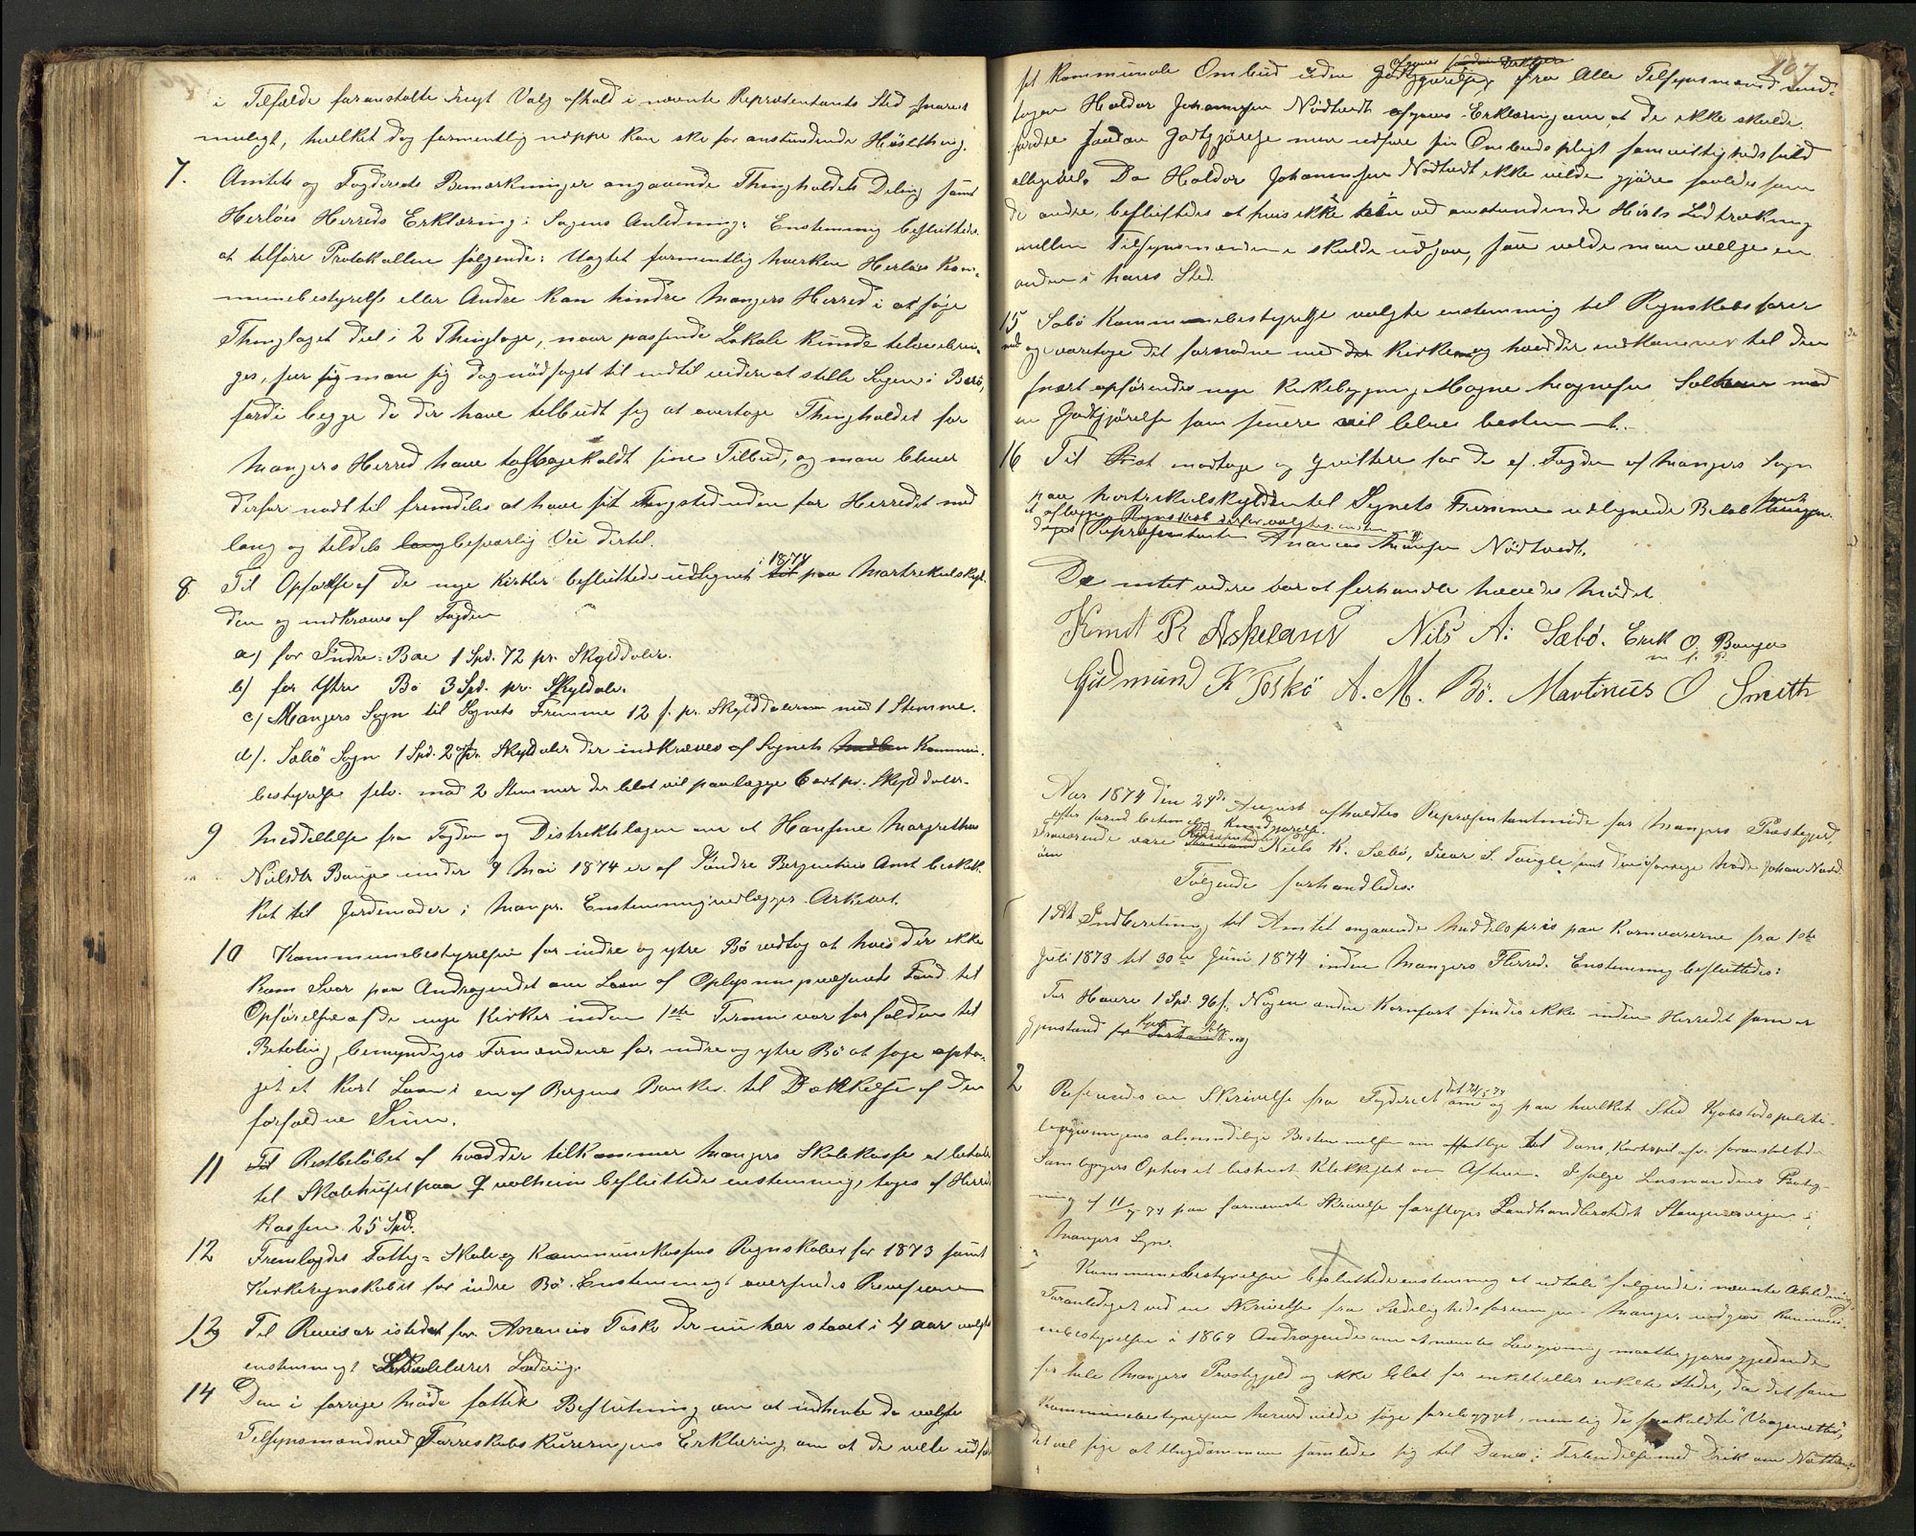 i Tilfælde foranstalte nyt Valg afhold i nævnte Repræsentants Sted snarest
muligt, hvilket dog formentlig neppe kan ske for anstundende Høstthing.
7. Amtets og Fogderiets Bemærkninger angaaende Thingholdets Deling samt
Herløe Herreds Erklæring i Sagens Anledning: Enstemmig besluttedes
at tilføre Protokollen følgende: Uagtet formentlig hverken Herløe Kom-
munebestyrelse eller Andre kan hindre Mangers Herred i at søge
Thinglaget deel i 2 Thinglage, naar passende Lokale kunde tilveiebrin-
ges, ser man sig dog nødsaget til indtil videre at stille Sagen i Bero,
fordi begge de der have tilbudt sig at overtage Thingholdet for
Mangers Herred have tilbagekaldt sine Tilbud, og man bliver
derfor nødt til fremdeles at have sit Thingsted uden for Herredet med
lang og tildels besværlig Vei dertil.
8. Til Opførelse af de nye Kirker besluttedes udlignet i 1874 paa Martrikulskyl-
den og indkræves af Fogden
a) for Indre Bøe 1 Spd. 72 pr. Skylddaler.
b) for Ytre Bø 3 Spd. pr. Skyldaler.
c) Mangers Sogn til Sognets Fremme 12 s. pr. Skylddaleren med 1 Stemme.
d). Sæbø Sogn 1 Spd. 2 ort pr. Skyldaler der indkræves af Sognets Kommune-
bestyrelse selv. mod 2 Stemmer der blot vil paalægge 6 ort pr. Skylddaler.
9 Meddelelse fra Fogden og Distriktslægen om at Hansine Margrethe
Nilsdtr Bauge under 9 Mai 1874 er af Søndre Bergenhus Amt beskik-
ket til Jordemoder i Manger. Enstemmig vedlægges Arkivet.
10 Kommunebestyrelsen for indre og ytre Bø vedtog at hvis der ikke
kom Svar paa Andragendet om Laan af Oplysningsvæsenets Fond til
Opførelse af de nye Kirker inden 1ste Termin var forfalden til
Betaling, bemyndiges Formændene for indre og ytre Bø at søge opta-
get et kort Laan i en af Bergens Banker til Dækkelse af den
forfaldne Sum.
11 Restbeløbet af hvad der tilkommer Mangers Skolekasse at betale
til Skolehuset paa Qvalheim besluttedes enstemmig, toges af Herreds
Kassen 25 Spd.
12 Fremlagdes Fattig- Skole og Kommunekassens Regnskaber for 1873 samt
Kirkeregnskabet for indre Bø. Enstemmigt oversendes Revisoren
13 Til Revisor istedet for Ananias Toskø der nu har staaet i 4 aar valgtes
enstemmigt Skolelærer Ludvig.
14 Den i forrige Møde fattede Beslutning om at indhente de valgte
Tilsynsmænd ved Torreskabskureringens Erklæring om at de ville udføre
107
sit kommunale Ombud uden Godtgjørelse, Fra Alle Tilsynsmænd und-
tagen Haldor Johannesen Nødtvedt afgaves Erklæring om at de ikke skulde
fordre saadan Godtgjørelse men udføre sin Ombudspligt samvittighedsfuld
alligevel. Da Haldor Johannesen Nødtvedt ikke vilde gjøre saaledes som
de andre, besluttedes at hvis ikke ved anstundende Høsts Lodtrækning
mellem Tilsynsmændene skulde udgaa, saa vilde man vælge en
anden i hans Sted.
15 Sæbø Kommunebestyrelse valgte enstemmig til Regnskabsfører
og varetage det fornødne med Kirken og hvad der indkommer til den
snart opførendes nye Kirkebygning Mogne Mognesen med
en Godtgjørelse som senere vil blive bestemt.
16 Til at modtage og qvittere for de af Fogden af Mangers Sogn
paa Martrikulskylden til Sognets Fremme udlignede Beløb samt
at aflægge Regnskab derfor valgtes
Repræsentanten Ananias Monsen Nødtvedt.
Da intet videre var at forhandle hævedes Mødet
Knut R Askeland Nils A: Sæbø. Erik O. Bauge
m. f. P.
Gudmund K Toskø A. M. Bø. Martinus O Smith
Aar 1874 den 24de August afholdtes Repræsentantmøde for Mangers Præstegjeld,
efter forud bestemt Kundgjørelse.
Fraværende vare Repræsentanterne Niels K. Sæbø, Iver S. Tougle, samt den i forrige Møde Johan Nord-
Følgende forhandledes:
1. At Indberetning til Amtet angaaende Middelspris paa Kornvarerne fra 1ste
Juli 1873 til 30te Juni 1874 inden Mangers Herred. Enstemmig besluttedes:
For Havre 1 Spd. 96 s. Nogen anden Kornsort findes ikke inden Herredet som er
Gjenstand for Kjøb og Salg.
2 Refereredes en Skrivelse fra Fogderiet om og paa hvilket Sted Kjøbstadspoliti-
lovgivningens almindelige Bestemmelser om offentlige Dans, Kortspil
Samlingers Ophør et bestemt Klokkeslet om Aftenen. Ifølge Lensmandens Paateg-
ning af 11/7 74 paa fornævnte Skrivelse foresloges Landhandlerstedet Stangenesvaagen i
Mangers Sogn.
Kommunebestyrelsen besluttede enstemmig at udtale følgende i nævnte Anledning
Foranlediget ved en Skrivelse fra Sædelighedsforeningen i Manger indgav Kommune-
bestyrelsen i 1869 Andragende om at nævnte Lovgivning maatte gjøres gjeldende
for hele Mangers Præstegjeld og ikke blot for enkelt eller enkelte Steder, da det som
Kommunebestyrelsen herved vilde søge forebygget, nemlig de saakaldte "Vaagenætter",
det vil sige at Ungdommen samledes sig til Dans i Forbindelse med Drik om Nætterne